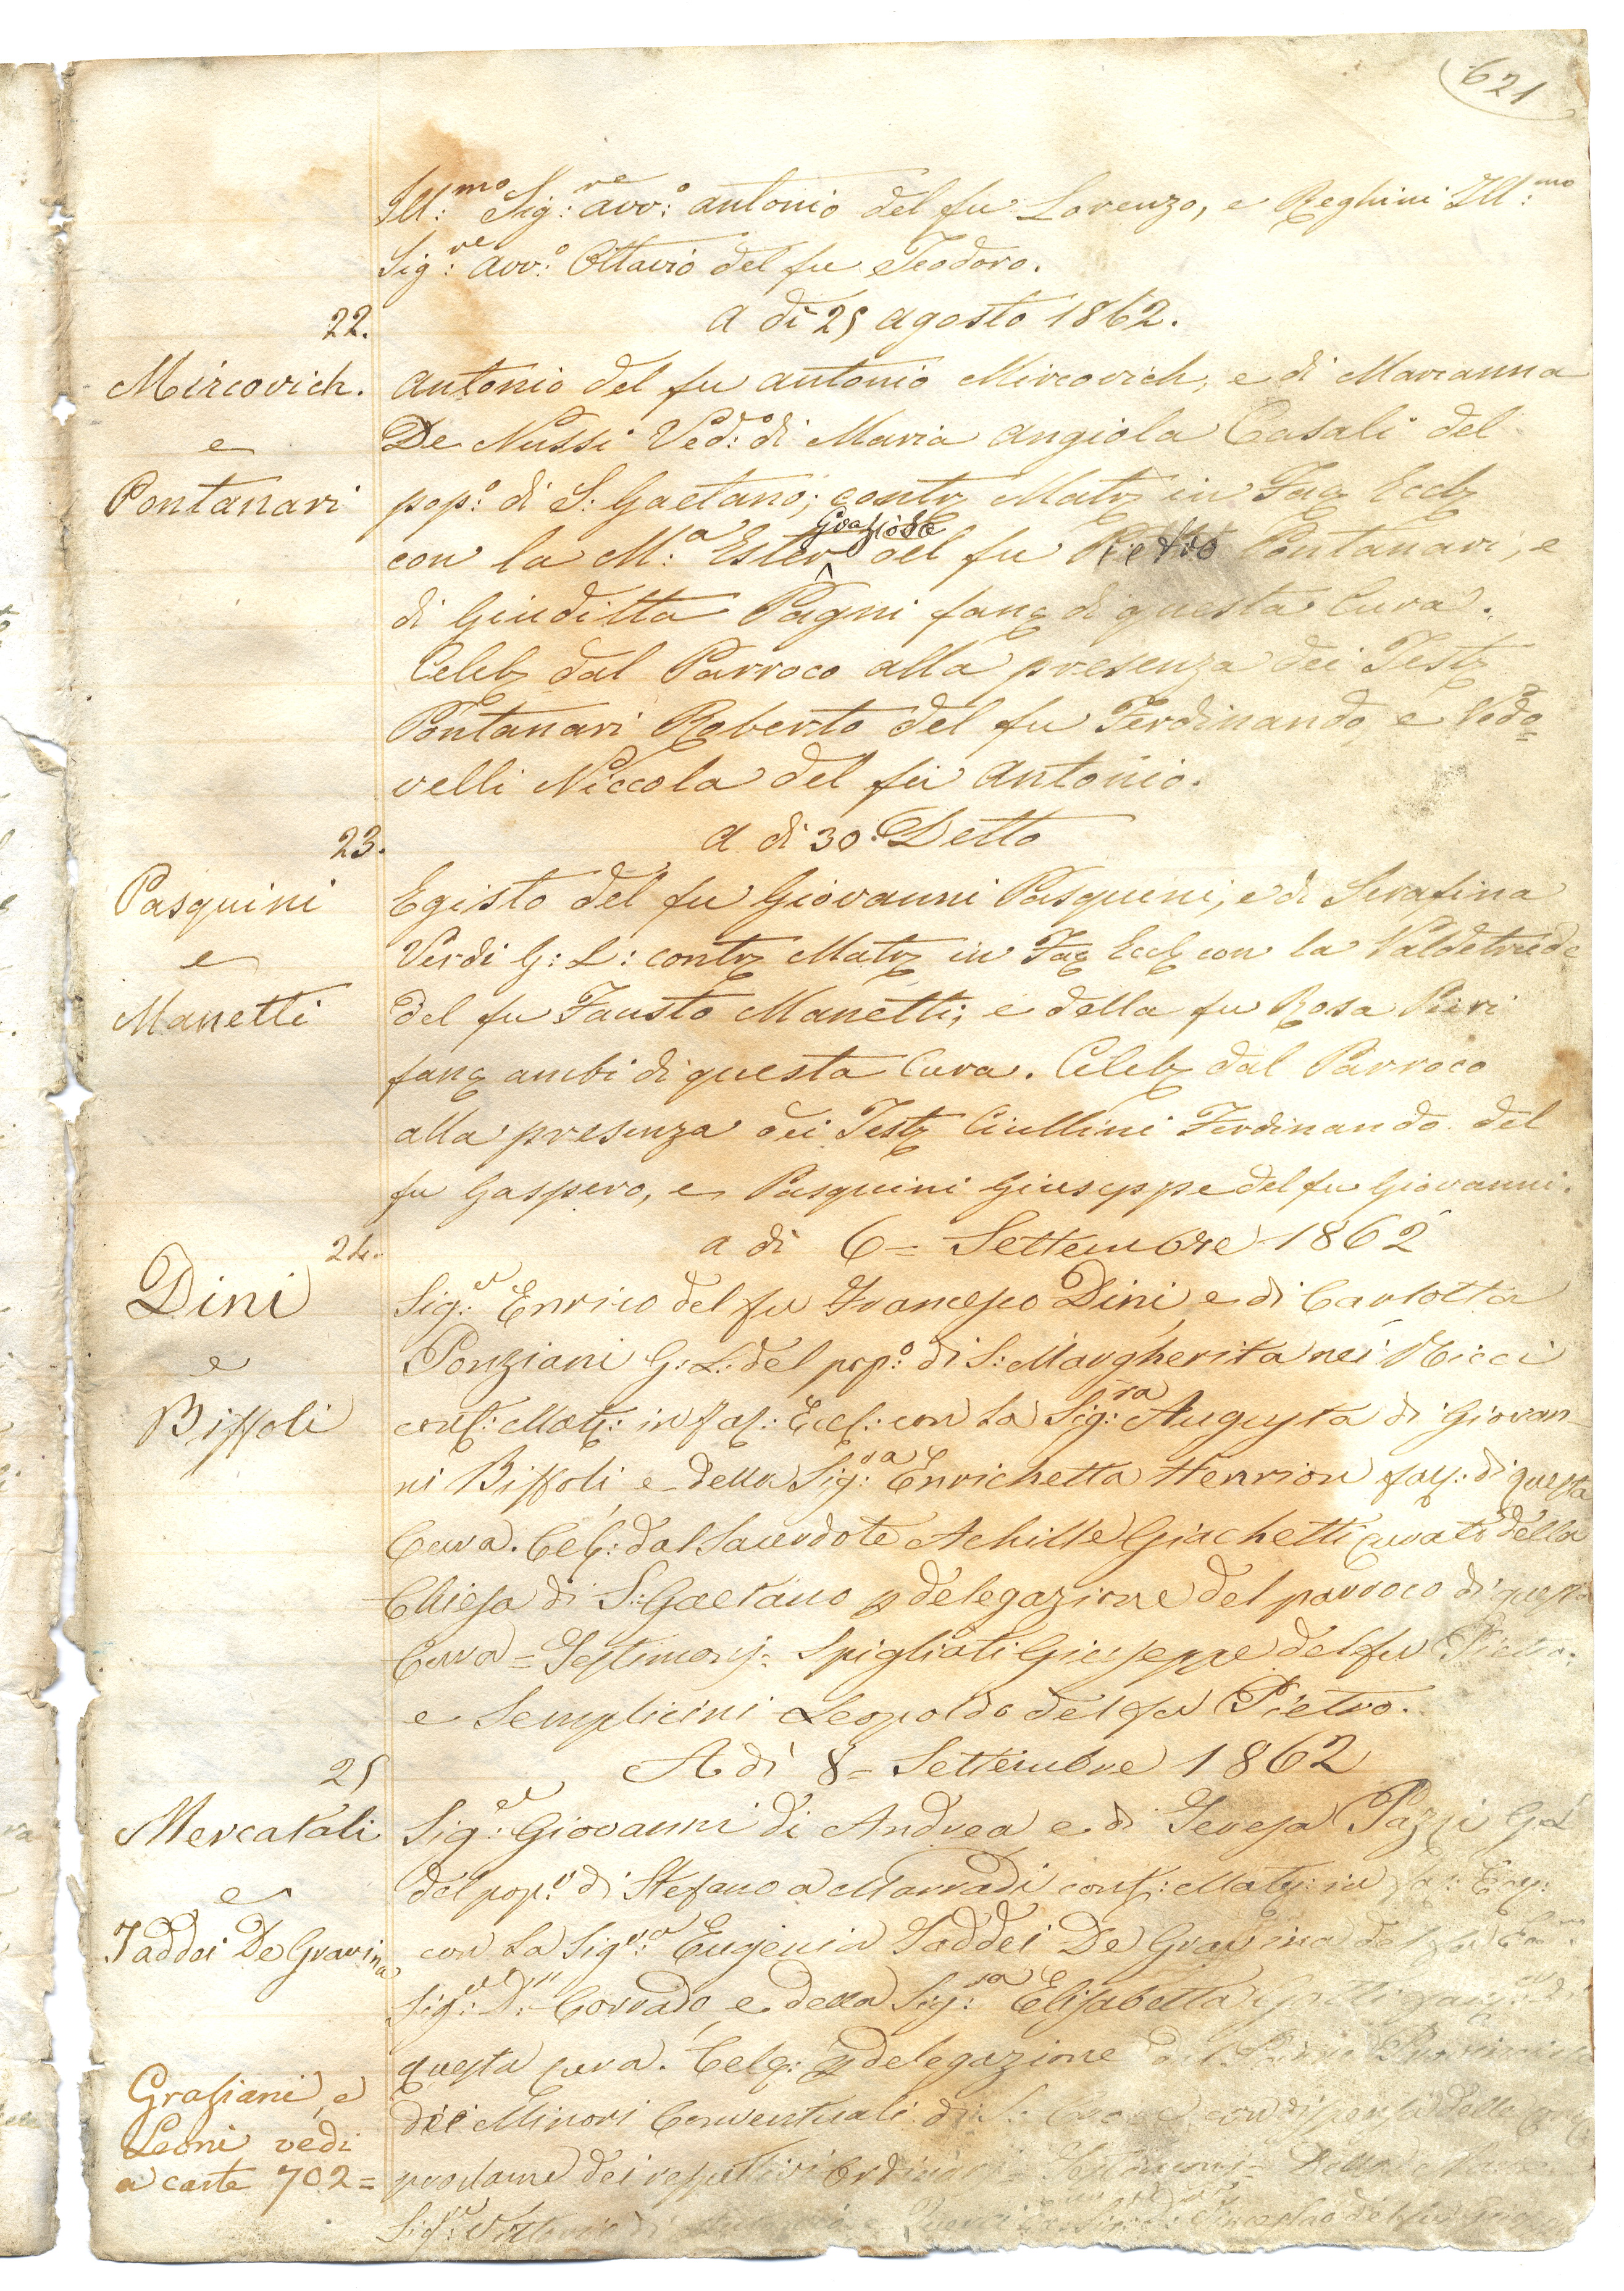 621
Ill:mo Sig:re avv:o antonio del fu Lorenzo, e Reghini Ill:mo
Sig:re avv:o Ottavio del fu Teodoro.
22. a dì 25 agosto 1862.
Mircovich. antonio del fu antonio Mircovich, e di Marianna
e De Nussi Ved:o di Maria angiola Casali del
Pontanari pop:o di S: Gaetano; contz Matz in Fac Eccl
con la M:a Ester Graziosa del fu Pietro Pontanari, e
di Giuditta Pagni fanc di questa Cura.
Celeb dal Parroco alla presenza dei Test
Pontanari Roberto del fu Ferdinando e Vedo=
velli Niccola del fu antonio.
23. a di 30: Detto
Pasquini Egisto del fu Giovanni Pasquini, e di Serafina
e Verdi G: L: contz Matz in Fac Eccl con la Valdetrude
Manetti del fu Fausto Manetti; e della fu Rosa Pieri
fanc ambi di questa Cura. Celeb dal Parroco
alla presenza dei Test Ciullini Ferdinando del
fu Gaspero, e Pasquini Giuseppe del fu Giovanni.
24. a di 6= Settembre 1862
Dini Sig:e Enrico del fu Francesco Dini, e di Carlotta
e Ponziani G: L: del pop:o di S: Margherita nei Ricci
Biffoli cont: Mat: in fac: Eccl: con la Sig:ra Augusta di Giovan-
ni Biffoli, e della Sig:ra Enrichetta Henrion fan: di questa
Cura. Cel: dal Sacerdote Achille Giachetti curato della
Chiesa di S: Gaetano p delegazione del parroco di questa
Cura = Testimonj: Spigliati Giuseppe del fu Pietro:
e Semplicini Leopoldo del fu Pietro.
25 A dì 8= Settembre 1862
Mercatali Sig:e Giovanni di Andrea e di Teresa Pazzi G L
e del pop:o di Stefano a Marradi cont: Mat: in fac: Ecc:
Taddei De Gravina con la Sig:ra Eugenia Taddei De Gravina del fu
Sig:e D:e Corrado, e della Sig:ra Elisabetta
questa cura. Cele: p delegazione del Padre
Grasiani, e dei Minori Conventuali di S: Croce con dispensa delle
Leoni vedi
a carte 702= proclame dei respettivi Ordinarj = Testimonj =
Sig:e Vittorio di